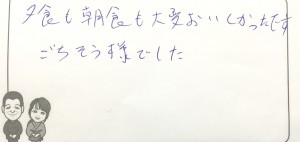 夕食も朝食も大変おいしかったです
ごちそう様でした